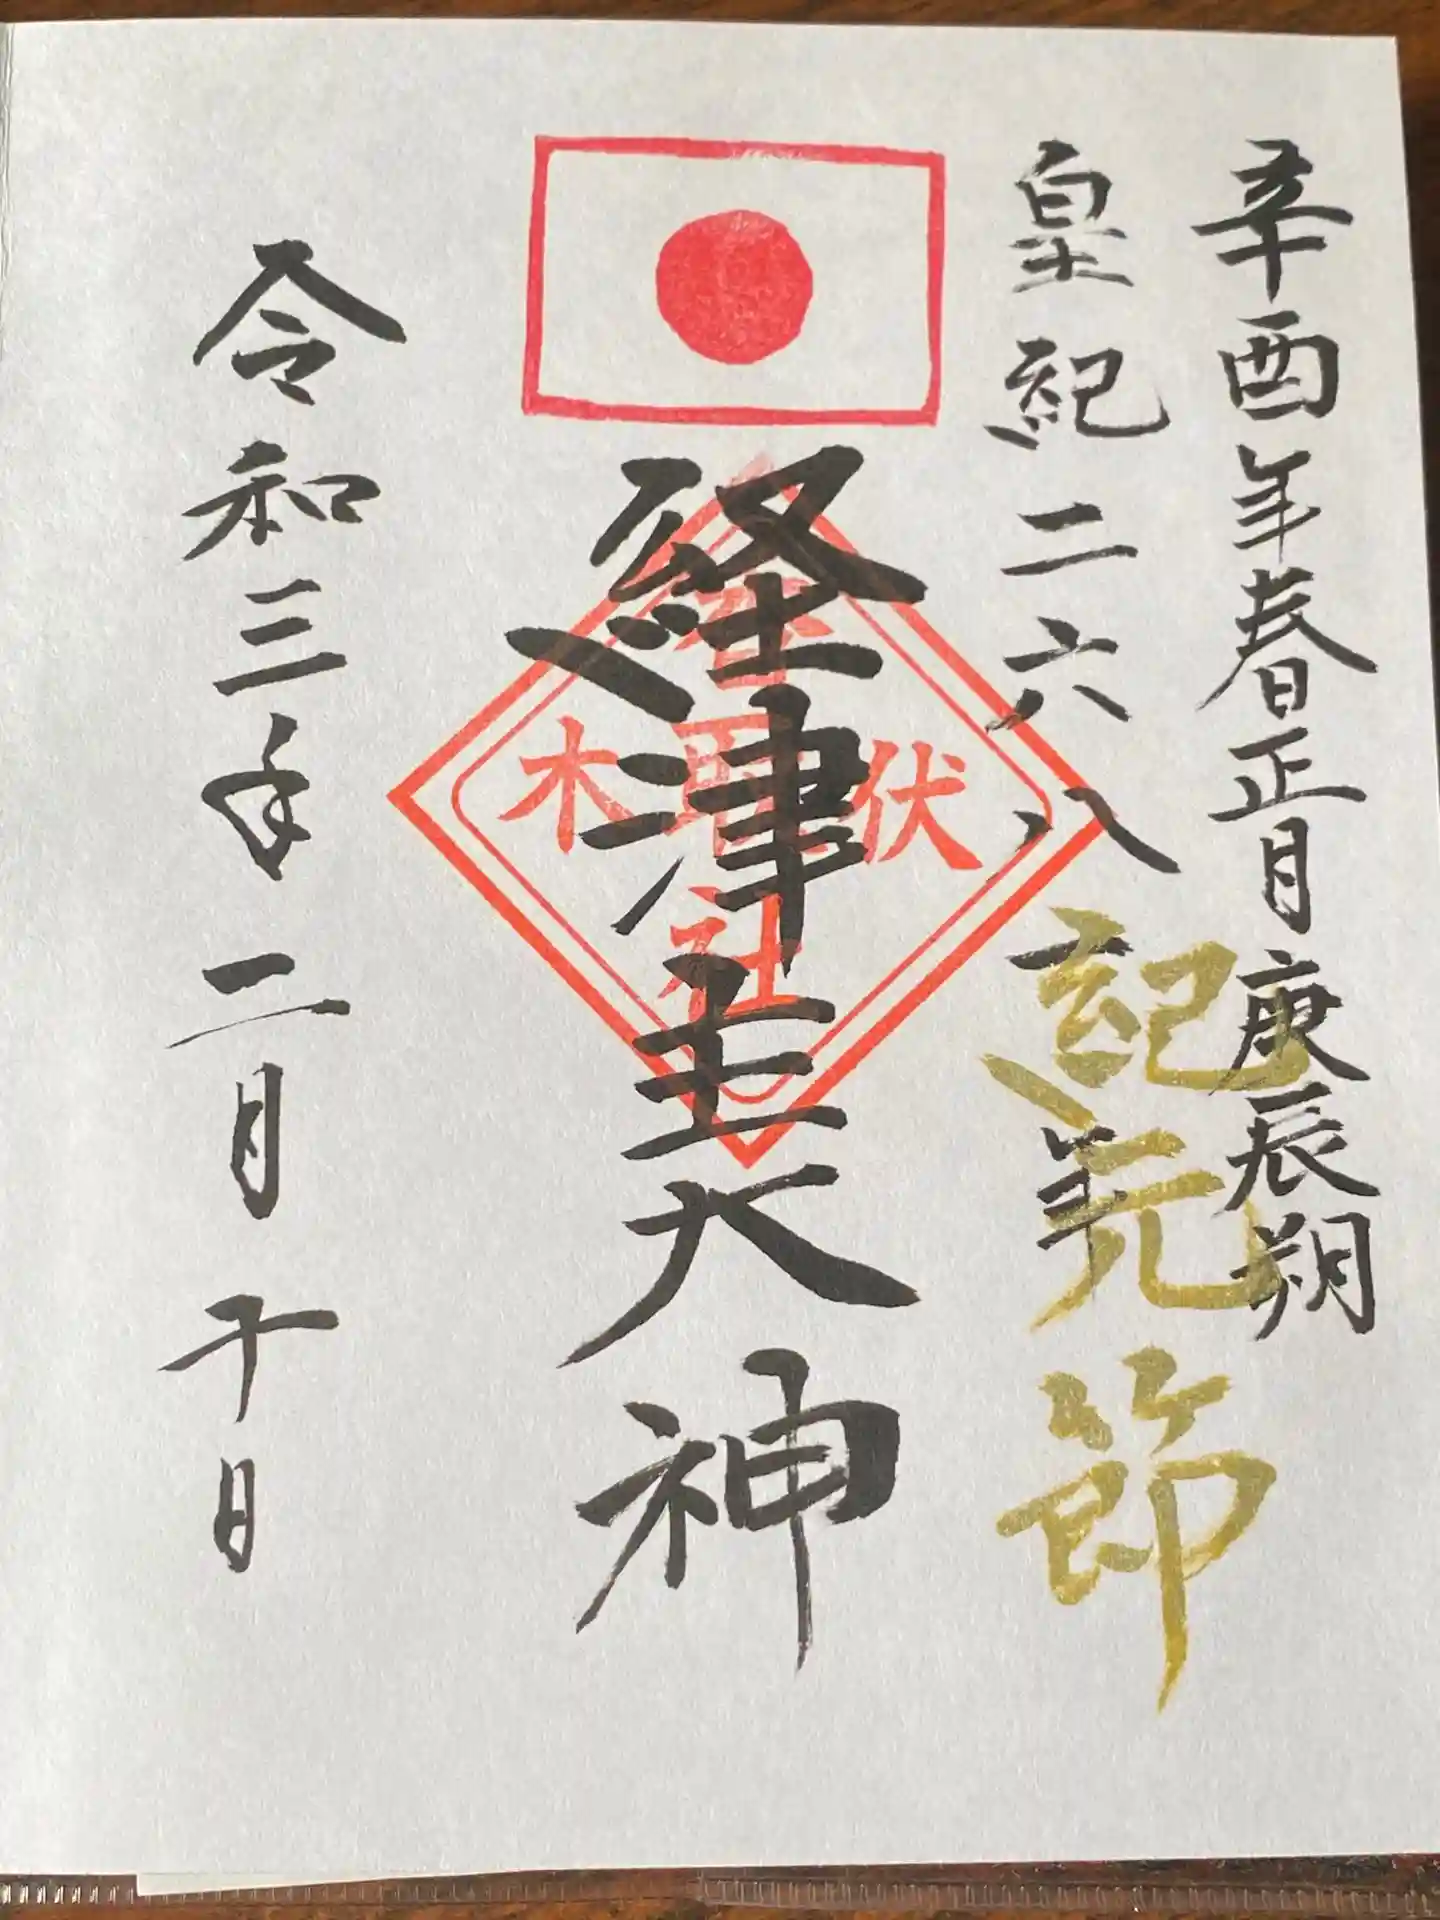 辛酉年春正月庚辰朔
皇紀二六八一年
紀元節
経津主大神
伏木
香取社
令和三年二月十日